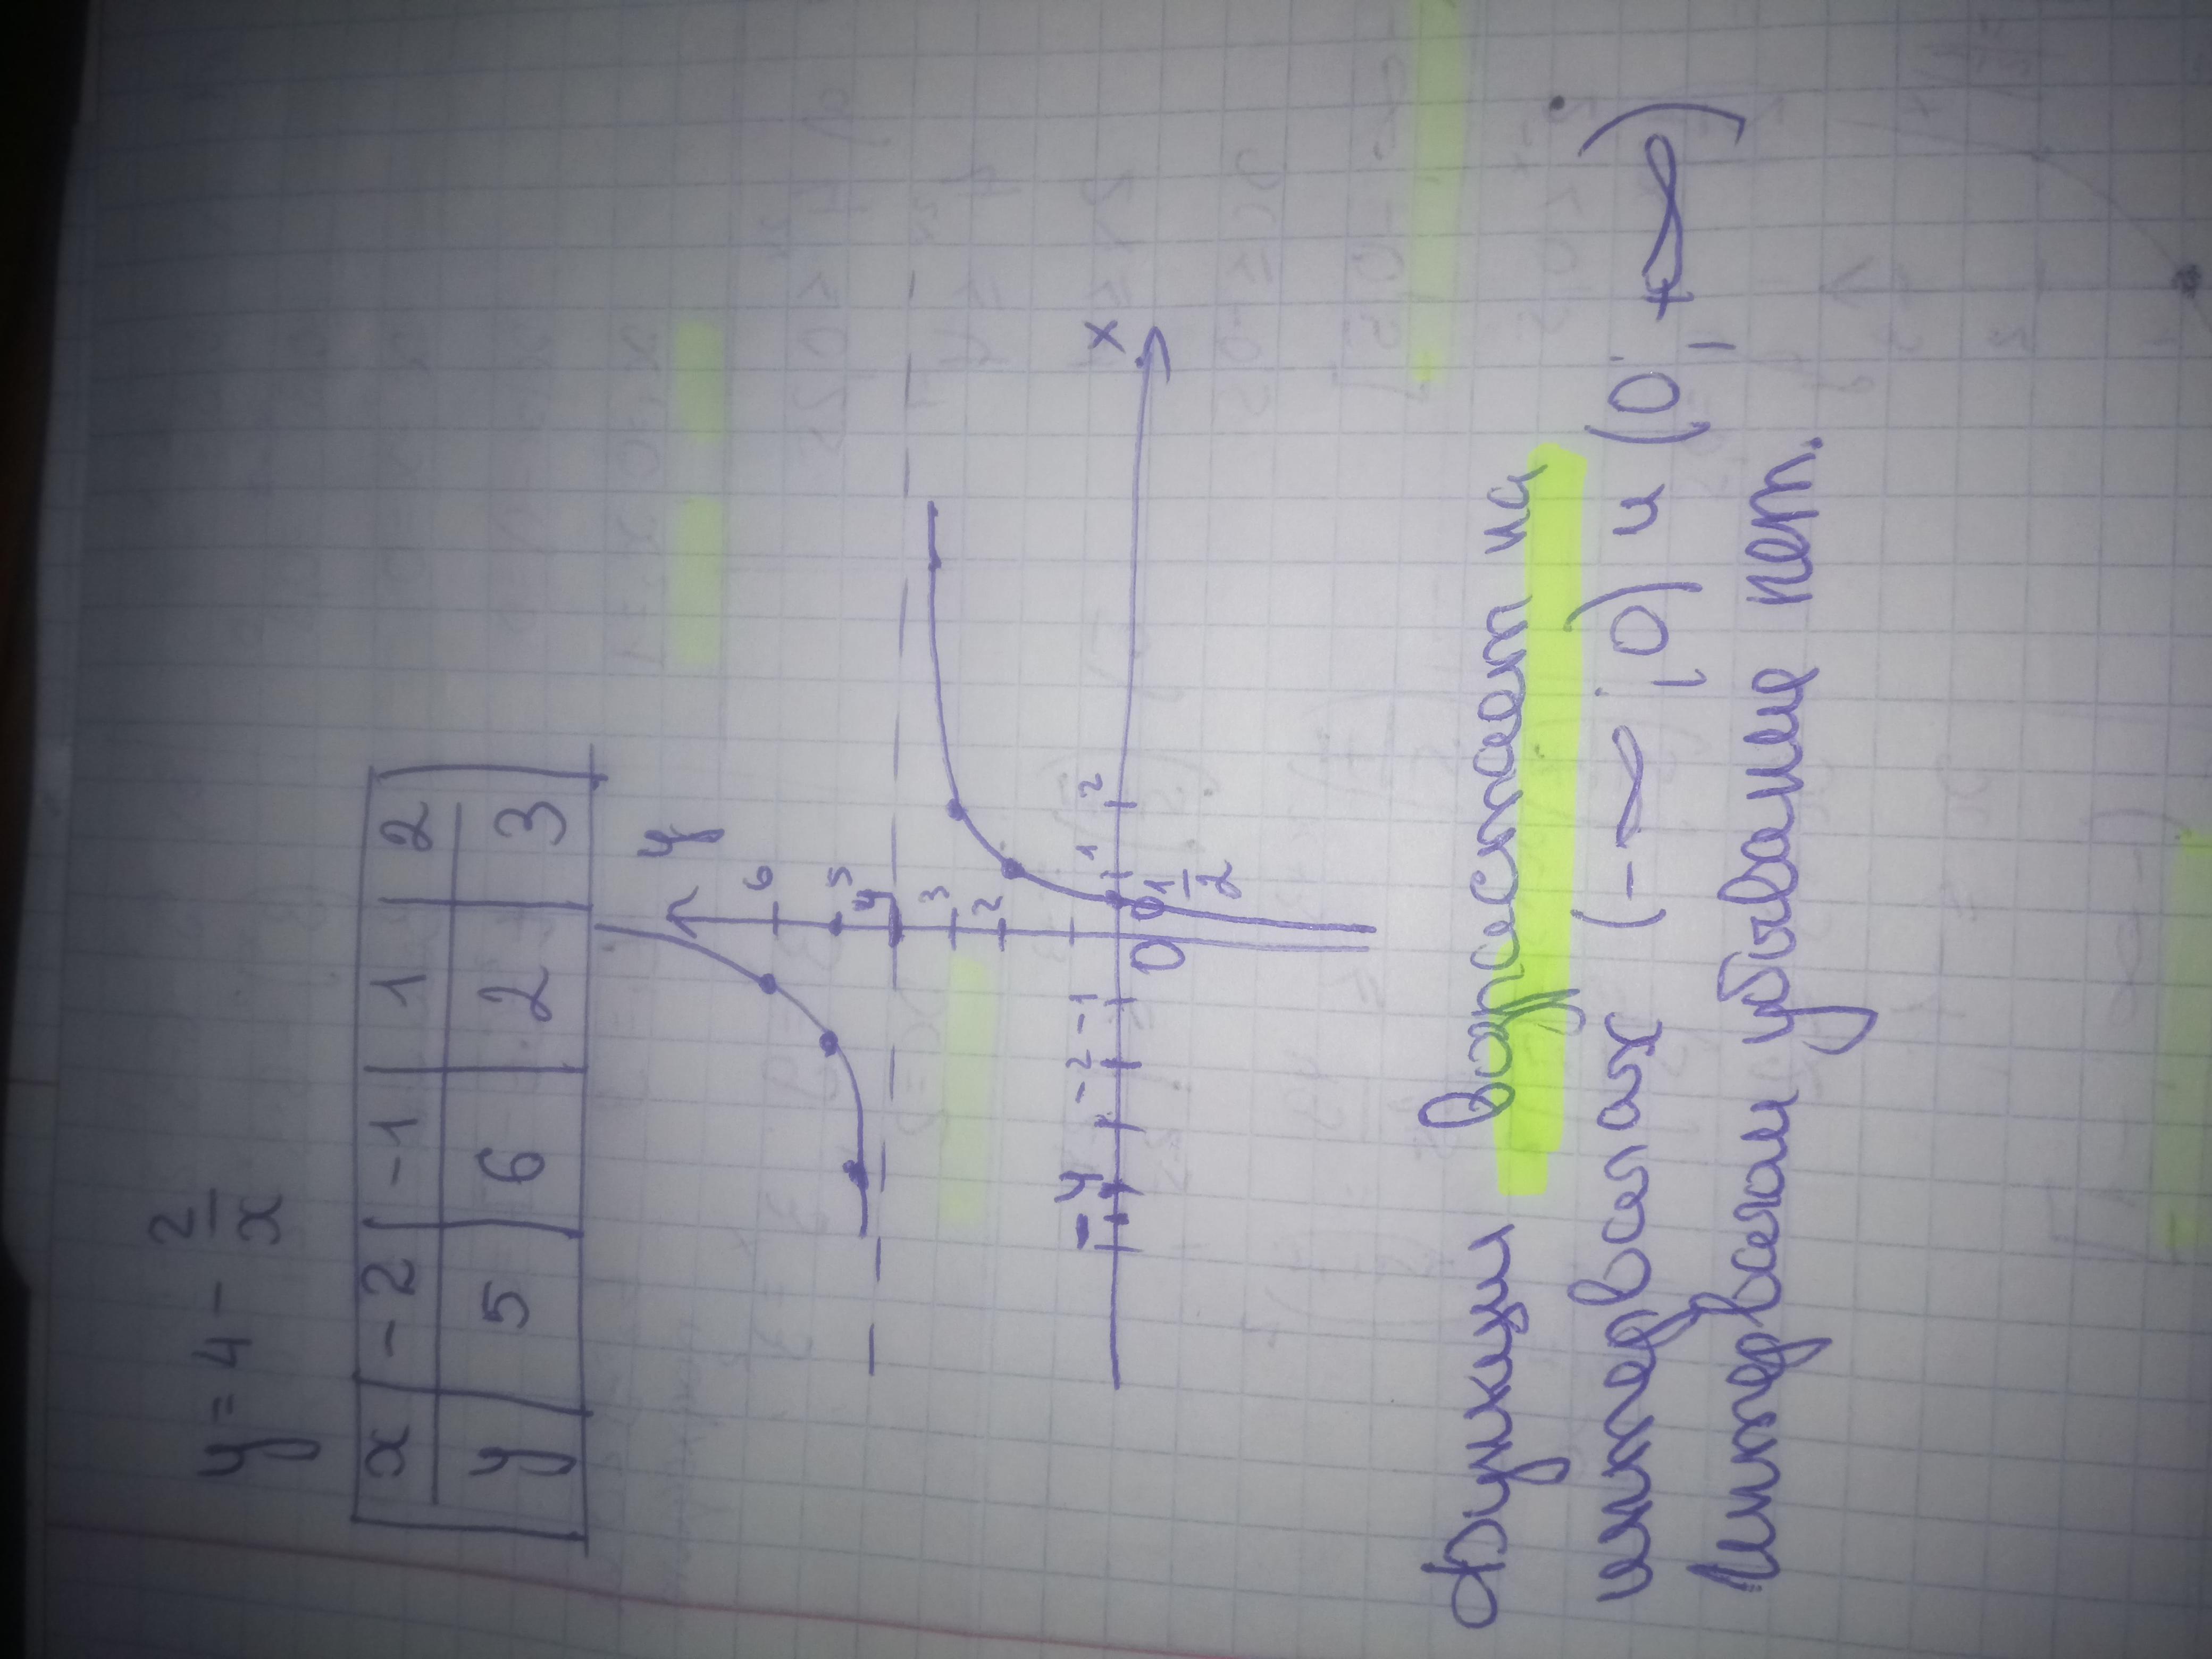 y = 4 - 2/x
x -2 -1 1 2
y 5 6 2 3
y
6
5
4
3
2
-4 -2 -1 0 1/2 1 2 x
Функция возрастает на
интервалах (-∞; 0) и (0; +∞)
Интервалы убывание нет.